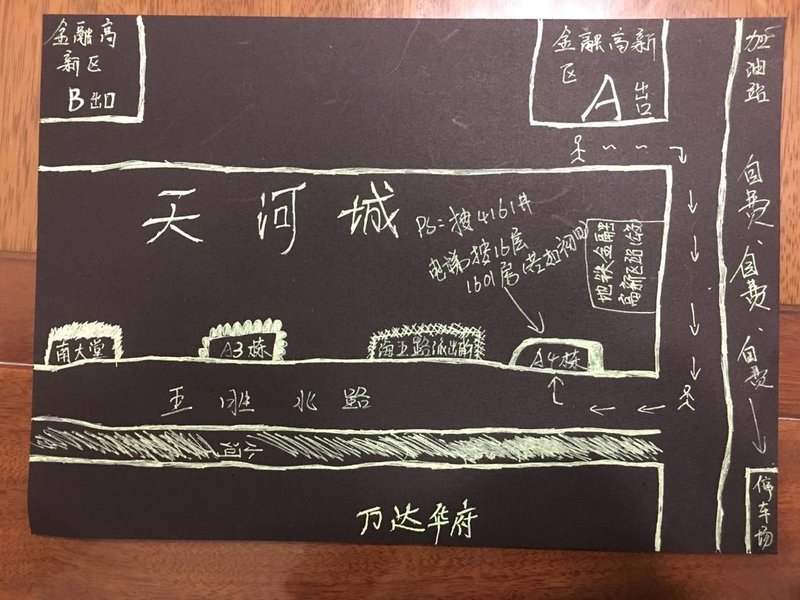 金融高
新区
B 出口
金融高新
区
A 出口
加油站
天河城
PS=按4161井
电梯按16层
1601层
地铁金融
高新区站
自费、自费、自费
南大堂
A3栋
海五路派出所
A4栋
北路
小河
万达华府
停车场